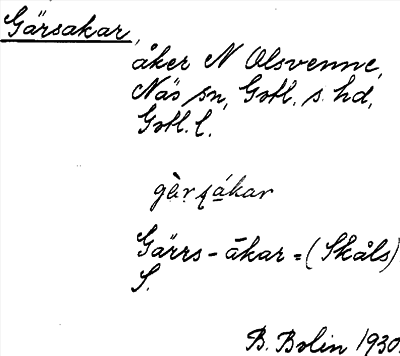 Gärsakar,
åker N Olsvenne,
Näs sn, Gotl. s. hd,
Gotl. l.
Gärrs-åkar = (Skåls)
S.
B. Bolin 1930.